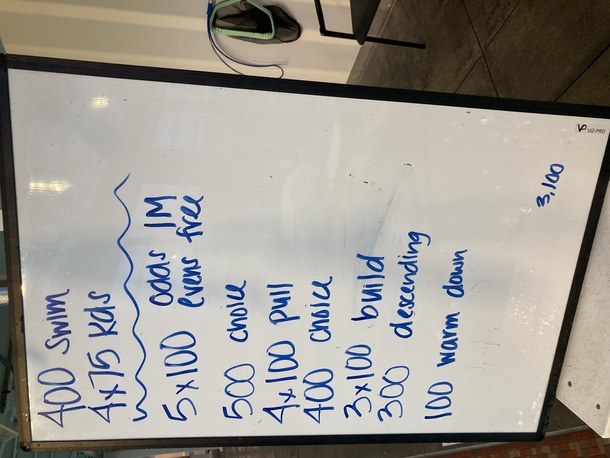 400 swim
4x75 kds
5x100 odds IM
evens free
500 choice
4x100 pull
400 choice
3x100 build
300 descending
100 warm down
3,100
VIZ-PRO